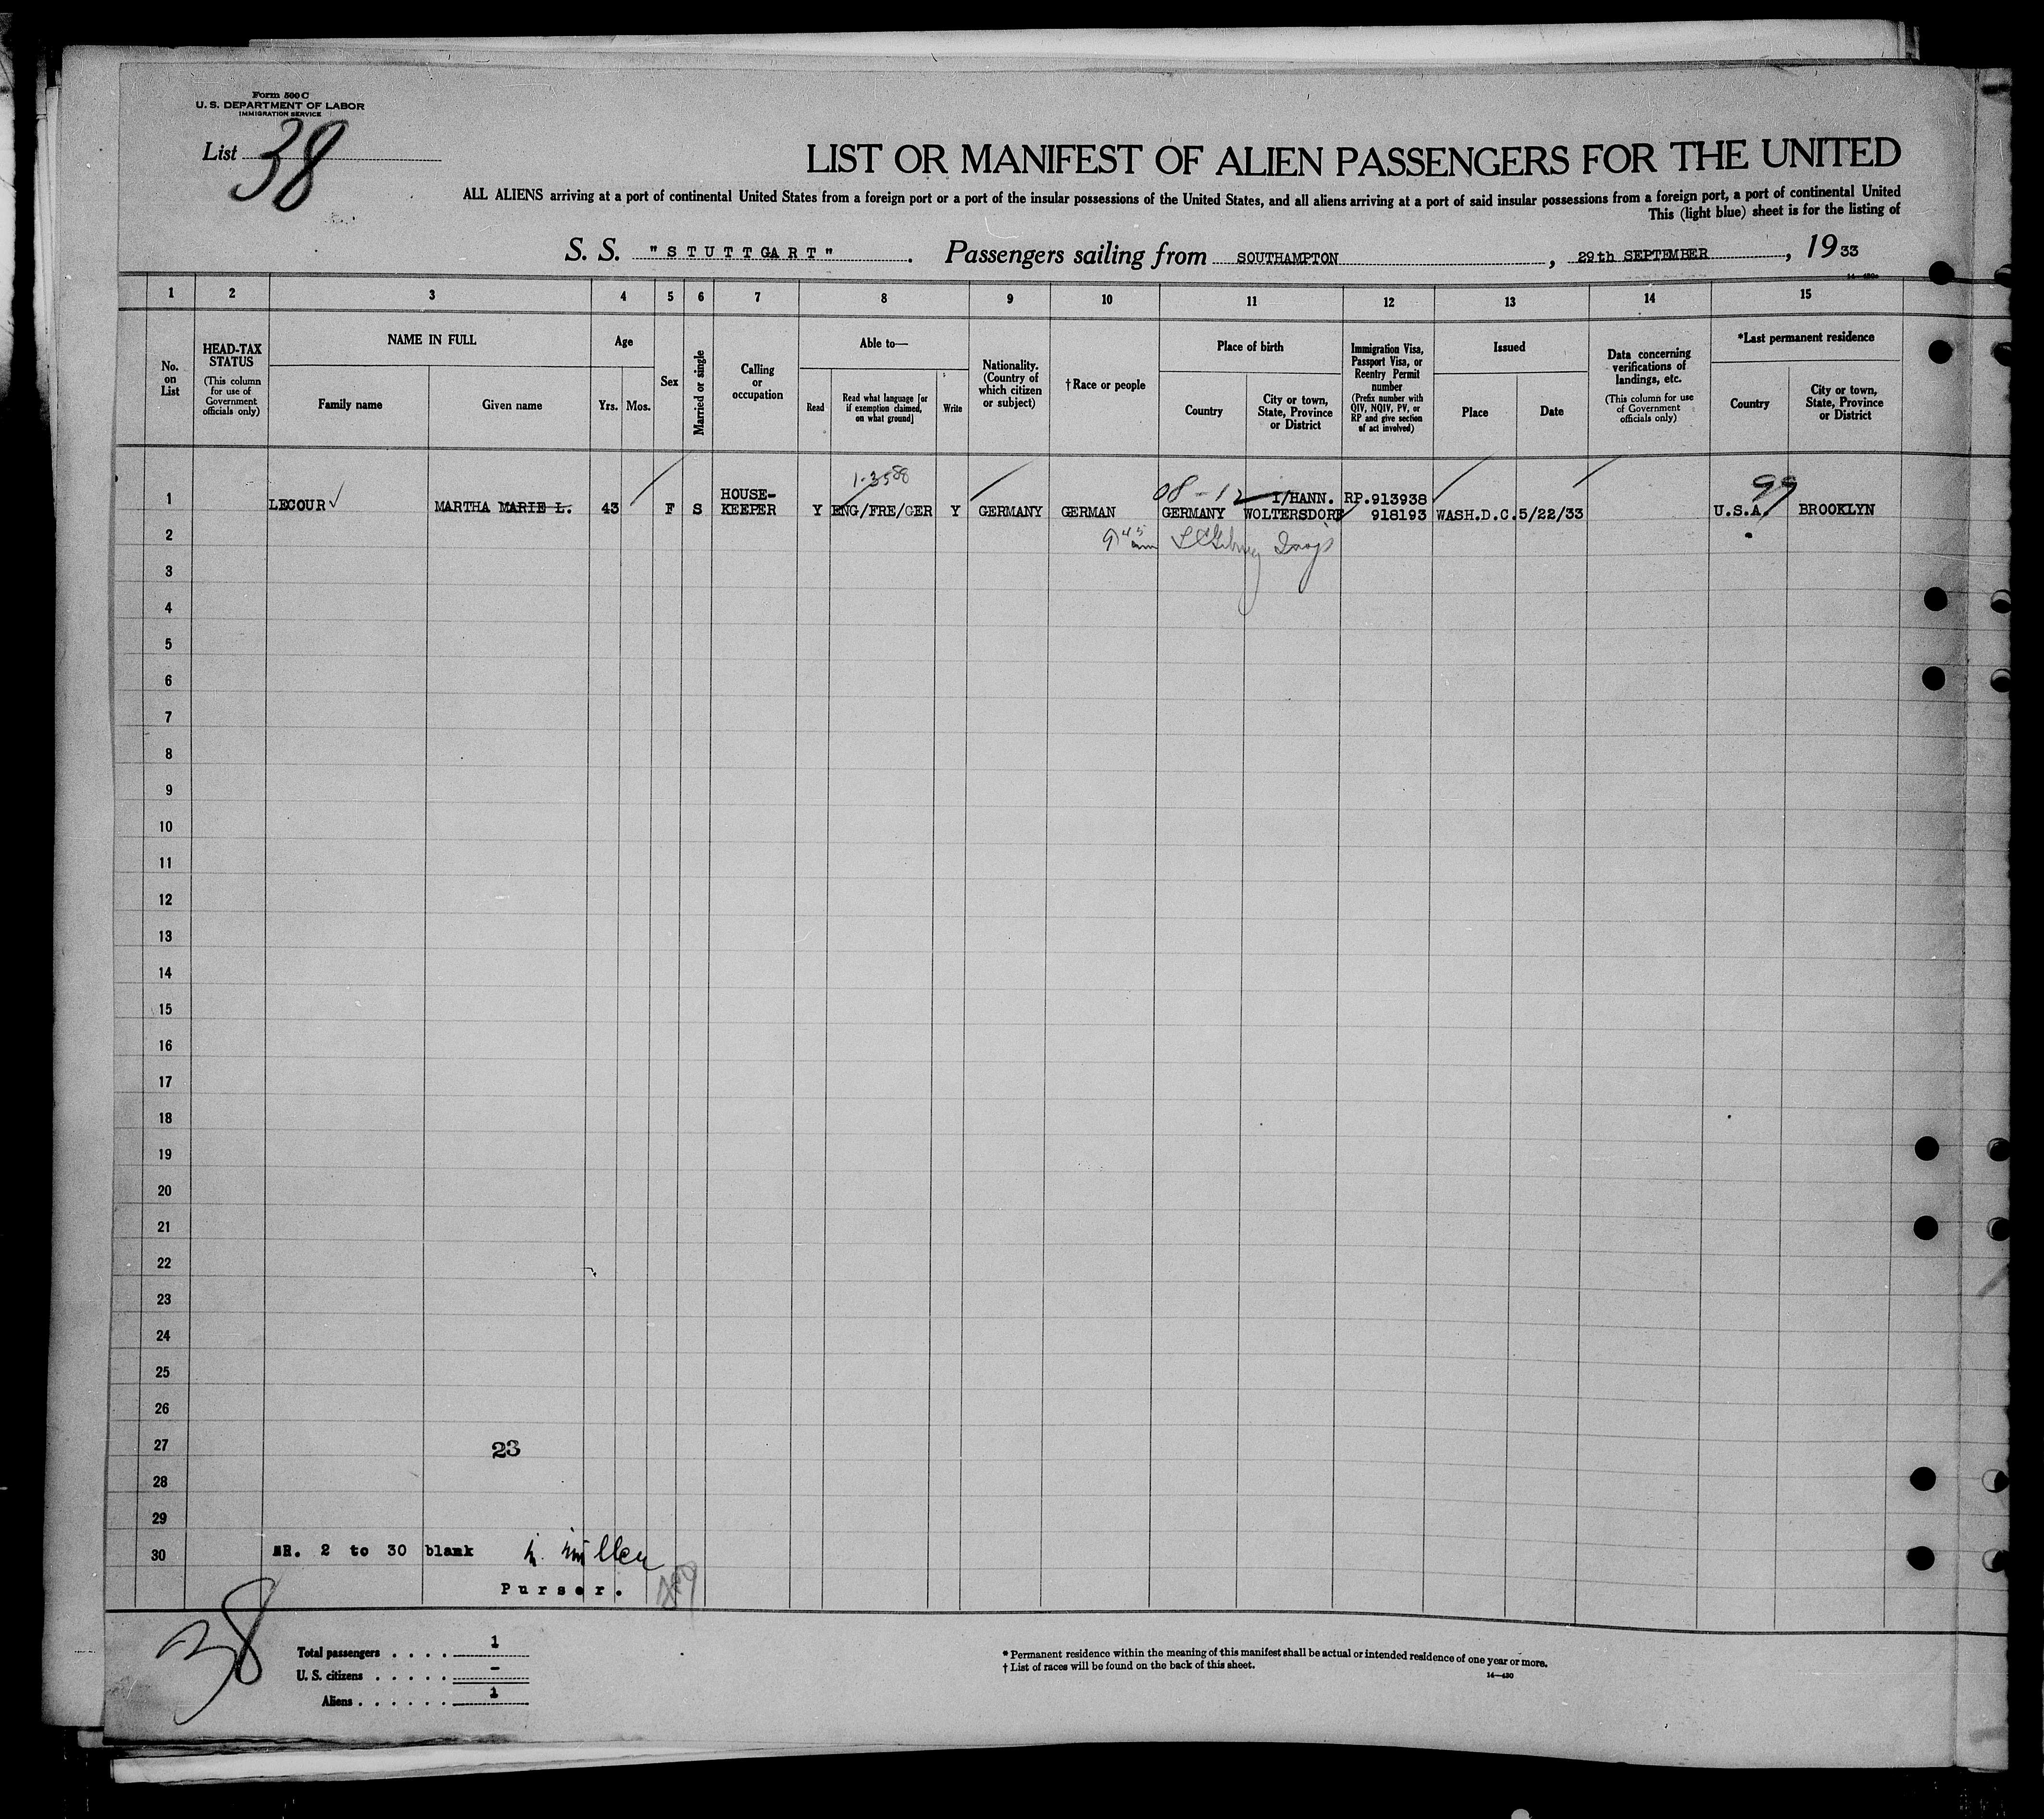 Form 500 C
U. S. DEPARTMENT OF LABOR
IMMIGRATION SERVICE
List 38
LIST OR MANIFEST OF ALIEN PASSENGERS FOR THE UNITED
ALL ALIENS arriving at a port of continental United States from a foreign port or a port of the insular possessions of the United States, and all aliens arriving at a port of said insular possessions from a foreign port, a port of continental United
This (light blue) sheet is for the listing of
S. S. "STUTTGART". Passengers sailing from SOUTHAMPTON, 29th SEPTEMBER, 1933
1 2 3 4 5 6 7 8 9 10 11 12 13 14 15
No. on List
HEAD-TAX STATUS
(This column for use of Government officials only)
NAME IN FULL
Family name
Given name
Age
Yrs.
Mos.
Sex
Married or single
Calling or occupation
Able to—
Read
Read what language [or if exemption claimed, on what ground]
Write
Nationality. (Country of which citizen or subject)
†Race or people
Place of birth
Country
City or town, State, Province or District
Immigration Visa, Passport Visa, or Reentry Permit number
(Prefix number with QIV, NQIV, PV, or RP and give section of act involved)
Issued
Place
Date
Data concerning verifications of landings, etc.
(This column for use of Government officials only)
*Last permanent residence
Country
City or town, State, Province or District
08-12
99
HOUSE- I/HANN. RP.913938
1 LECOUR MARTHA MARIE L. 43 F S KEEPER Y ENG/FRE/GER Y GERMANY GERMAN GERMANY WOLTERSDORF 918193 WASH.D.C. 5/22/33 U.S.A. BROOKLYN
2
3
4
5
6
7
8
9
10
11
12
13
14
15
16
17
18
19
20
21
22
23
24
25
26
27 23
28
29
30 NR. 2 to 30 blank
Purser.
38
Total passengers . . . . 1
U. S. citizens . . . . . –
Aliens . . . . . . 1
* Permanent residence within the meaning of this manifest shall be actual or intended residence of one year or more.
† List of races will be found on the back of this sheet.
14—430